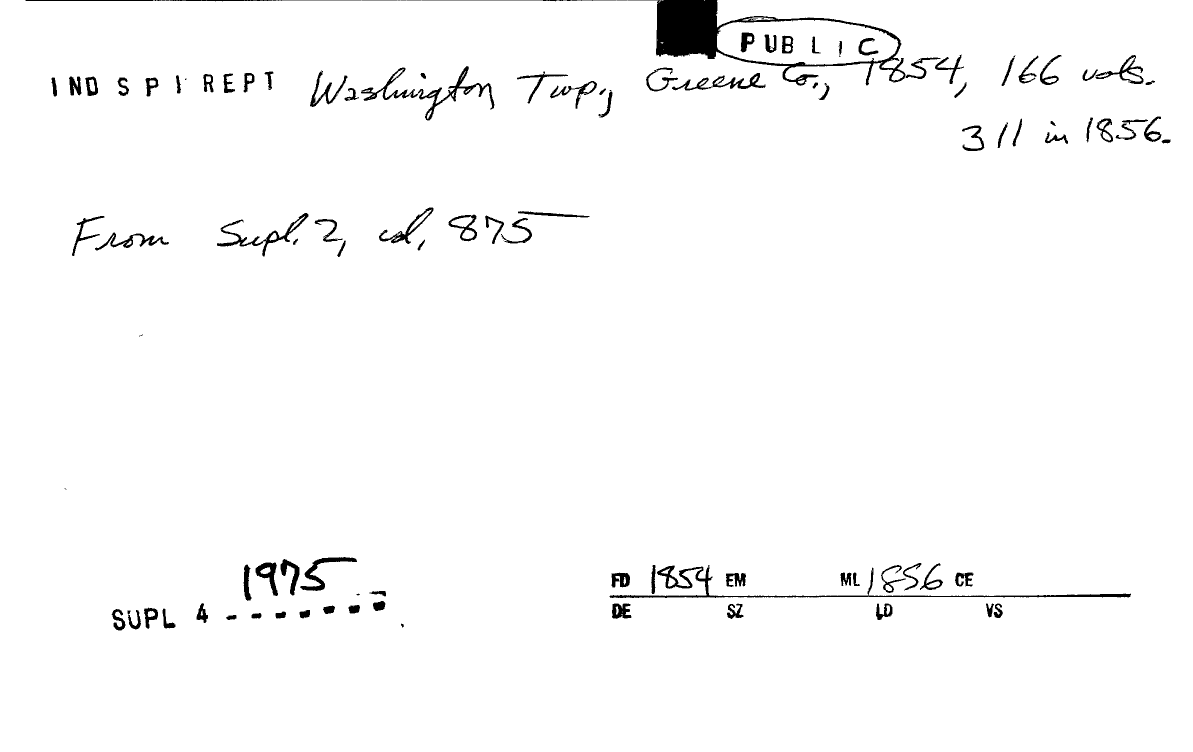 PUBLIC
IND SPI REPT Washington Twp., Greene Co., 1854, 166 vols.
311 in 1856.
From Supl. 2, col. 875
1975
SUPL 4 -------
FD 1854 EM ML 1856 CE
DE SZ LD VS